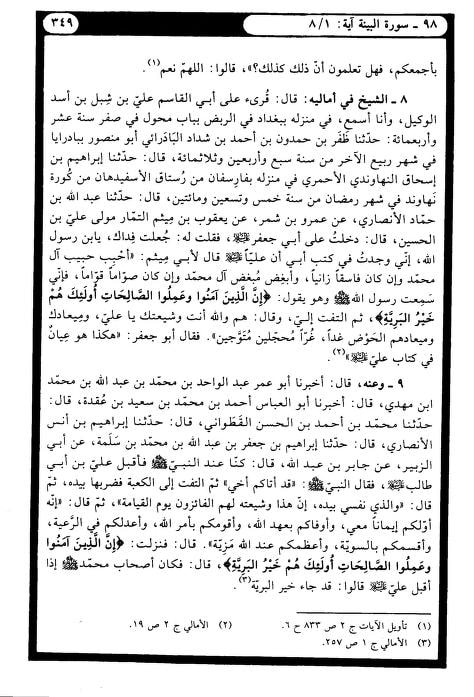 ٩٨ ـ سورة البينة آية: ٨/١
٣٤٩
بأجمعكم، فهل تعلمون أنّ ذلك كذلك؟»، قالوا: اللهمّ نعم(١).
٨ ـ الشيخ في أماليه: قال: قُرىء على أبي القاسم عليّ بن شِبل بن أسد
الوكيل، وأنا أسمع، في منزله ببغداد في الربض بباب محول في صفر سنة عشر
وأربعمائة: حدّثنا ظَفَر بن حمدون بن أحمد بن شداد البَادَرائي أبو منصور ببادرايا
في شهر ربيع الآخر من سنة سبع وأربعين وثلاثمائة، قال: حدّثنا إبراهيم بن
إسحاق النهاوندي الأحمري في منزله بفارسفان من رُستاق الأسفيدهان من كُورة
نَهاوند في شهر رمضان من سنة خمس وتسعين ومائتين، قال: حدّثنا عبد الله بن
حمّاد الأنصاري، عن عمرو بن شمر، عن يعقوب بن مِيثم التمّار مولى عليّ بن
الحسين، قال: دخلتُ على أبي جعفر ﷺ، فقلت له: جُعلت فِداك، يابن رسول
الله، إنّي وجدتُ في كتب أبي أن عليّاً ﷺ قال لأبي مِيثم: «أحبِب حبيب آل
محمّد وإن كان فاسقاً زانياً، وأبغِض مُبغض آل محمّد وإن كان صوّاماً قوّاماً، فإنّي
سَمِعت رسول الله ﷺ وهو يقول: ﴿إِنَّ الَّذِينَ آمَنُوا وَعَمِلُوا الصَّالِحَاتِ أُولَئِكَ هُمْ
خَيْرُ البَرِيَّةِ﴾، ثم التفت إليّ، وقال: هم والله أنت وشيعتك يا عليّ، وميعادك
وميعادهم الحَوْض غداً، غُرّاً مُحجّلين مُتَوَّجين». فقال أبو جعفر: «هكذا هو عِيانٌ
في كتاب عليّ ﷺ»(٢).
٩ ـ وعنه، قال: أخبرنا أبو عمر عبد الواحد بن محمّد بن عبد الله بن محمّد
ابن مهدي، قال: أخبرنا أبو العباس أحمد بن محمّد بن سعيد بن عُقدة، قال:
حدّثنا محمّد بن أحمد بن الحسن القَطَواني، قال: حدّثنا إبراهيم بن أنس
الأنصاري، قال: حدّثنا إبراهيم بن جعفر بن عبد الله بن محمّد بن سَلَمة، عن أبي
الزبير، عن جابر بن عبد الله، قال: كنّا عند النبيّ ﷺ فأقبل عليّ بن أبي
طالب ﷺ، فقال النبيّ ﷺ: «قد أتاكم أخي» ثمّ التفت إلى الكعبة فضربها بيده، ثمّ
قال: «والذي نفسي بيده، إنّ هذا وشيعته لهم الفائزون يوم القيامة»، ثمّ قال: «إنّه
أوّلكم إيماناً معي، وأوفاكم بعهد الله، وأقومكم بأمر الله، وأعدلكم في الرَّعية،
وأقسمكم بالسويّة، وأعظمكم عند الله مَزِيّة». قال: فنزلت: ﴿إِنَّ الَّذِينَ آمَنُوا
وَعَمِلُوا الصَّالِحَاتِ أُولَئِكَ هُمْ خَيْرُ البَرِيَّةِ﴾، قال: فكان أصحاب محمّد ﷺ إذا
أقبل عليّ ﷺ قالوا: قد جاء خير البريّة(٣).
(١) تأويل الآيات ج ٢ ص ٨٣٣ ح ٦.
(٢) الأمالي ج ٢ ص ١٩.
(٣) الأمالي ج ١ ص ٢٥٧.